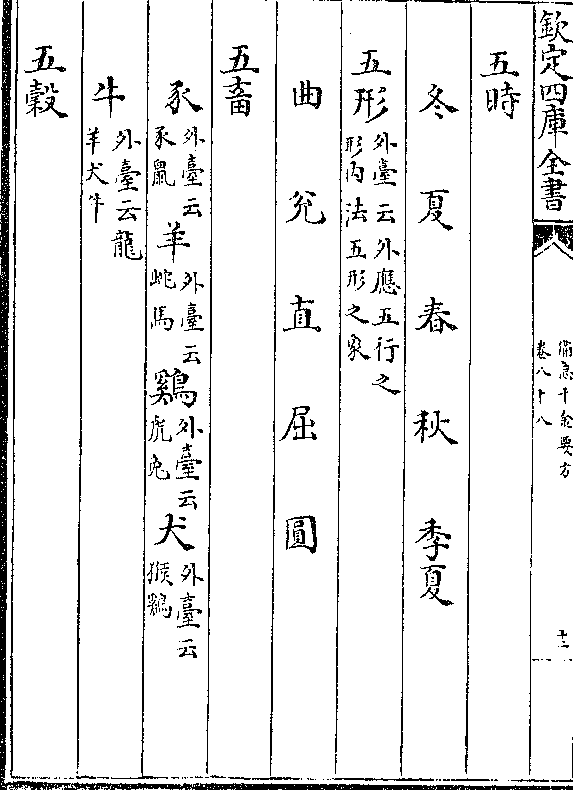 欽定四庫全書
備急千金要方
卷八十八
十二
五時
冬 夏 春 秋 季夏
五形外臺云外應五行之
形内法五形之象
曲 兊 直 屈 圓
五畜
豕外臺云豕鼠羊外臺云蛇馬鷄外臺云虎兔犬外臺云猴鷄
牛外臺云龍
羊犬牛
五穀